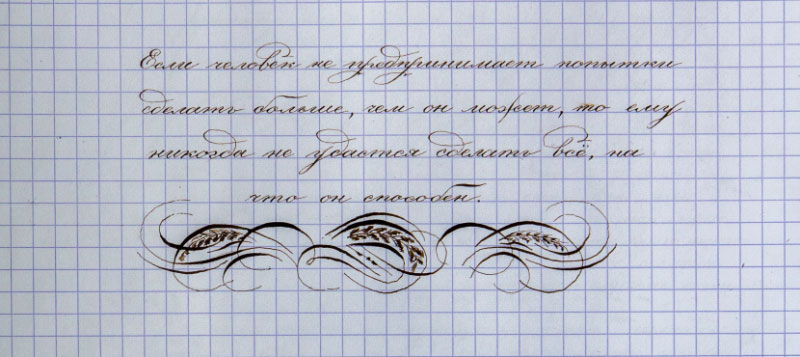 Если человек не предпринимает попытки
сделать больше, чем он может, то ему
никогда не удастся сделать всё, на
что он способен.